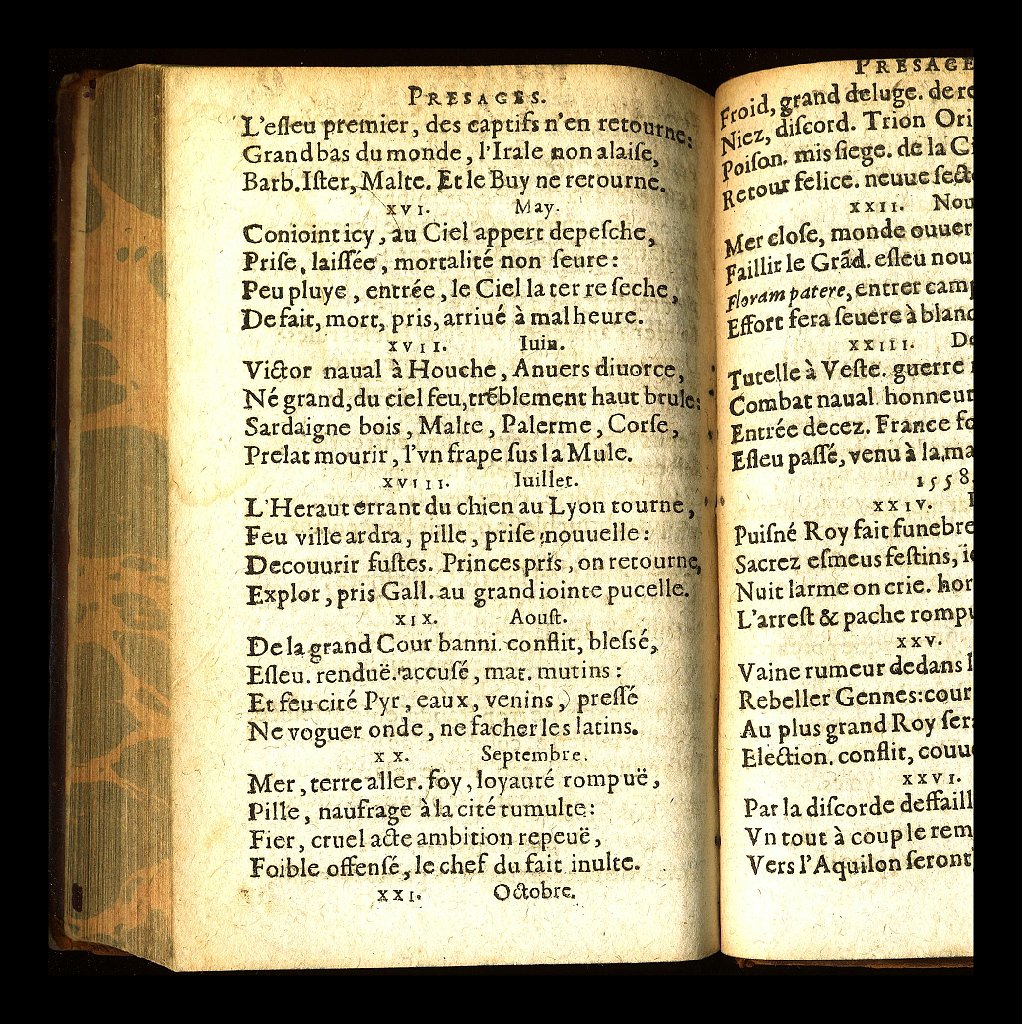 PRESAGES.
L'esleu premier, des captifs n'en retourne:
Grand bas du monde, l'Irale non alaise,
Barb. Ister, Malte. Et le Buy ne retourne.
XVI. May.
Conioint icy, au Ciel appert depesche,
Prise, laissée, mortalité non seure:
Peu pluye, entrée, le Ciel la ter re seche,
De fait, mort, pris, arriué à mal heure.
XVII. Iuin.
Victor naual à Houche, Anuers diuorce,
Né grand, du ciel feu, trẽblement haut brule:
Sardaigne bois, Malte, Palerme, Corse,
Prelat mourir, l'vn frape sus la Mule.
XVIII. Iuillet.
L'Heraut errant du chien au Lyon tourne,
Feu ville ardra, pille, prise nouuelle:
Decouurir fustes. Princes pris, on retourne,
Explor, pris Gall. au grand iointe pucelle.
XIX. Aoust.
De la grand Cour banni. conflit, blessé,
Esleu. renduë. accusé, mat. mutins:
Et feu cité Pyr, eaux, venins, pressé
Ne voguer onde, ne facher les latins.
XX. Septembre.
Mer, terre aller. foy, loyauté rompuë,
Pille, naufrage à la cité tumulte:
Fier, cruel acte ambition repeuë,
Foible offensé, le chef du fait inulte.
XXI. Octobre.
PRESAGE
Froid, grand deluge. de re
Niez, discord. Trion Ori
Poison. mis siege. de la Ci
Retour felice. neuue secte
XXII. Nou
Mer close, monde ouuer
Faillir le Grãd. esleu nou
Floram patere, entrer camp
Effort fera seuere à blanc
XXIII. De
Tutelle à Veste. guerre
Combat naual. honneur
Entrée decez. France fo
Esleu passé, venu à la ma
1558.
XXIV.
Puisné Roy fait funebre
Sacrez esmeus festins, ie
Nuit larme on crie. hor
L'arrest & pache rompu
XXV.
Vaine rumeur dedans l
Rebeller Gennes: cour
Au plus grand Roy sera
Election. conflit, couu
XXVI.
Par la discorde deffaill
Vn tout à coup le rem
Vers l'Aquilon seront